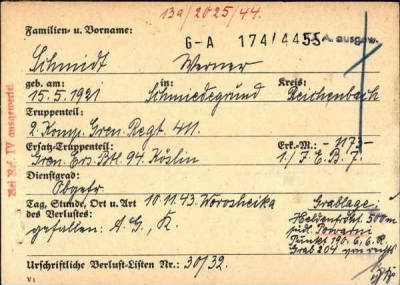 13a/2025/44.
Familien- u. Vorname:
G-A 174/4455 A. ausgew.
Schmidt Werner
geb. am: in: Kreis:
15.5.1921 Schmiedegrund Reichenbach
Truppenteil:
2. Komp. Gren. Regt. 411.
Ersatz-Truppenteil: Erk.-M.: -1173-
Gren. Ers. Btl. 94 Köslin 1./J.E.B. 7.
Dienstgrad:
Obgefr.
Tag, Stunde, Ort u. Art 10.11.43. Worosheika
des Verlustes:
gefallen: A.G., K.
Grablage:
Heldenfrdhf. 500m
südl. Powarni
Punkt 190.6, 6. R.
Grab 204 von rechts
Urschriftliche Verlust-Listen Nr.: 30/32.
V1
Bei Ref. IV ausgewertet